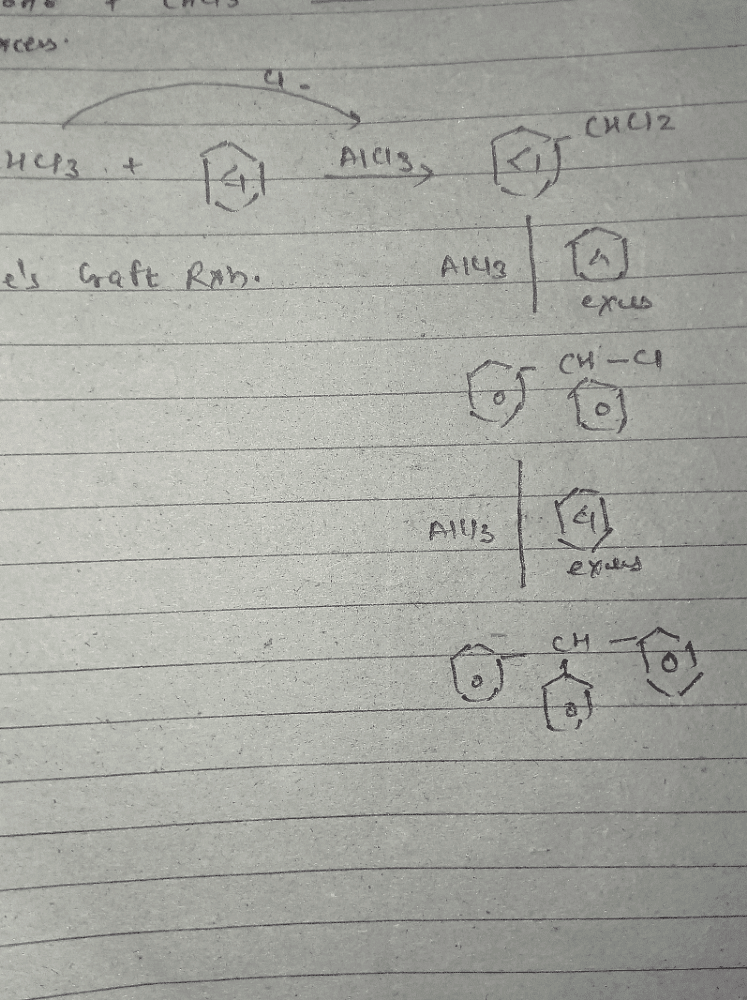 + CHCl3
xcess.
Cl -
HCl3 + AlCl3 CHCl2
e's Craft Rxn.
AlCl3
exces
CH - Cl
AlCl3
excess
CH